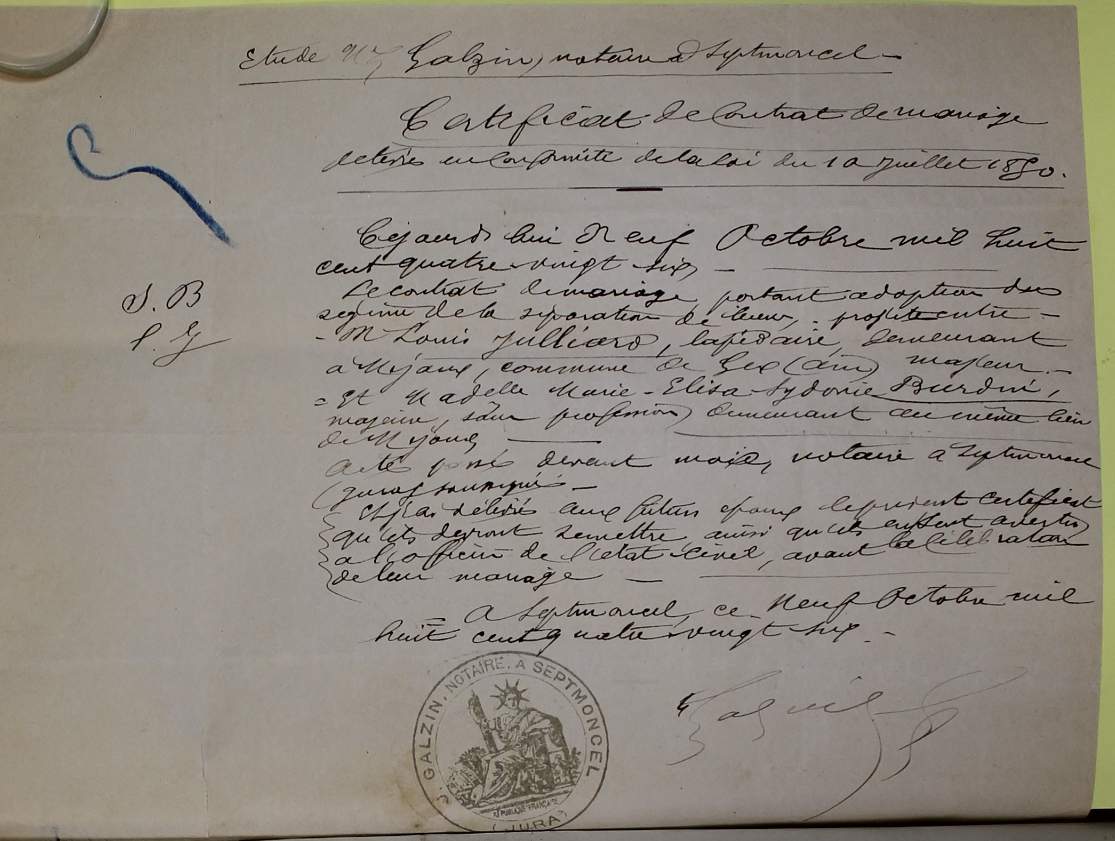 Etude Me Galzin, notaire à Septmoncel
Certificat de Contrat de mariage
délivré en conformité de la loi du 10 Juillet 1850.
Cejourd'hui Neuf Octobre mil huit
cent quatre vingt six
S. B
L. J
Le contrat de mariage portant adoption du
régime de la séparation de biens, projeté entre
M Louis Julliard, lapidaire, demeurant
à Mijoux, commune de Gex (ain) majeur.
= Et Madelle Marie-Elisa-Sydonie Burdin,
majeure, sans profession, demeurant au même lieu
de Mijoux,
a été passé devant moi, notaire à Septmoncel
(Jura) soussigné
Et j'ai délivré aux futurs époux le présent certificat
qu'ils devront remettre, ainsi qu'ils en sont avertis
à l'officier de l'état-civil, avant la célébration
de leur mariage
= A Septmoncel, ce Neuf Octobre mil
huit cent quatre vingt six
Galzin
J. GALZIN, NOTAIRE, A SEPTMONCEL
RÉPUBLIQUE FRANÇAISE
(JURA)